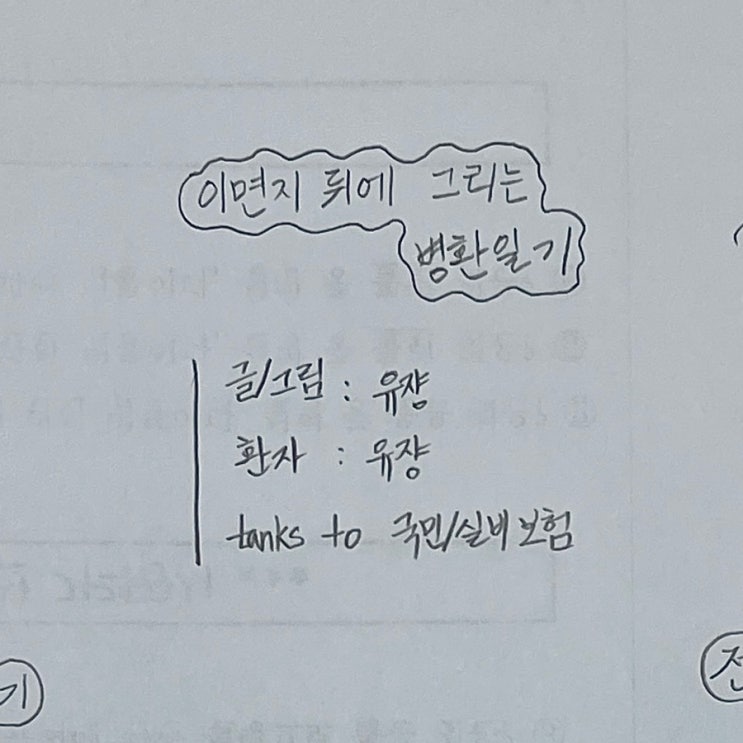 이면지 뒤에 그리는
병환일기
글/그림 : 유쟝
환자 : 유쟝
tanks to 국민/실비보험
기
전